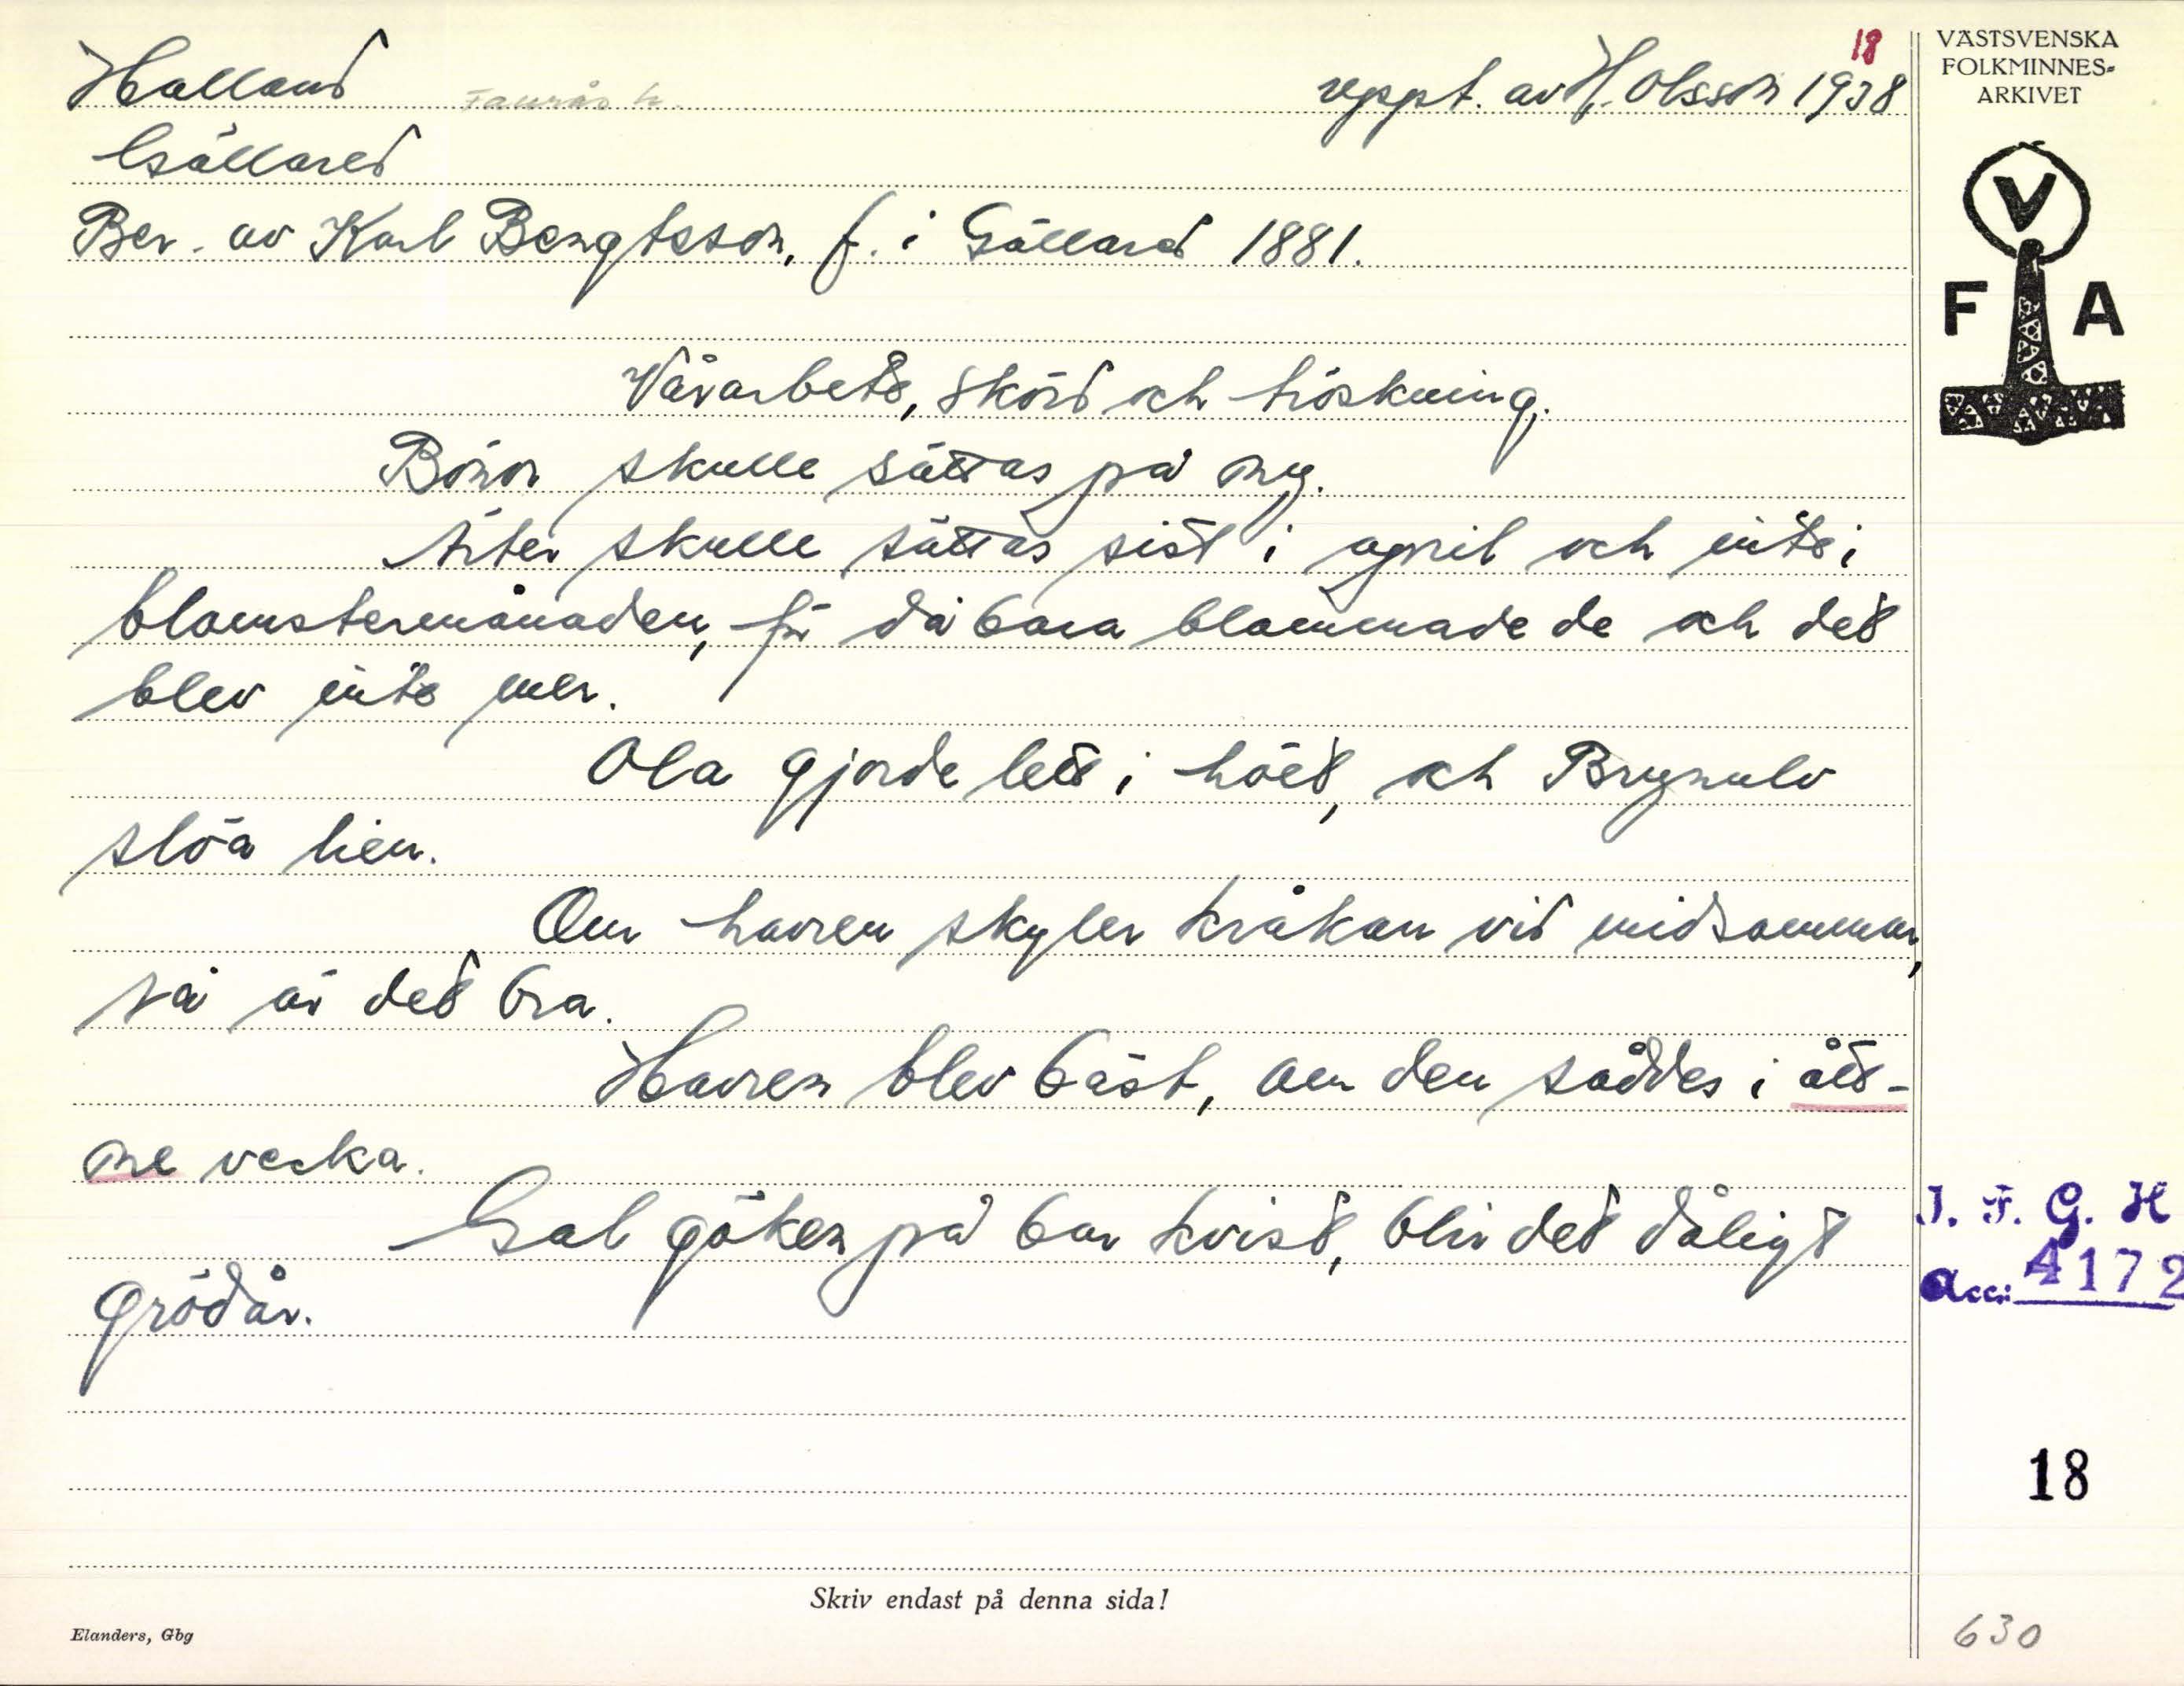 18
VÄSTSVENSKA
FOLKMINNES-
ARKIVET
Halland Faurås h. uppt. av H. Olsson 1938
Gällared
Ber. av Karl Bengtsson, f. i Gällared 1881.
V
F A
Vårarbete, skörd och tröskning.
Bönor skulle sättas på ny.
Ärter skulle sättas sist i april och inte i
blomstermånaden, för då bara blommade de och det
blev inte mer.
Ola gjorde lett i höet, och Brynulv
slöa lien.
Om havren skyler kråkan vid midsommar,
så är det bra.
Havren blev bäst, om den såddes i ått-
ne vecka.
Gal göken på bar kvist, blir det dåligt
grödår.
I. F. G. H
Acc: 4172
18
Skriv endast på denna sida!
Elanders, Gbg
630